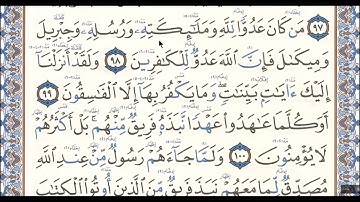 ٩٧ مَن كَانَ عَدُوًّا لِّلَّهِ وَمَلَـٰٓئِكَتِهِۦ وَرُسُلِهِۦ وَجِبْرِيلَ
وَمِيكَىٰلَ فَإِنَّ ٱللَّهَ عَدُوٌّ لِّلْكَـٰفِرِينَ ٩٨ وَلَقَدْ أَنزَلْنَآ
إِلَيْكَ ءَايَـٰتٍۭ بَيِّنَـٰتٍ ۖ وَمَا يَكْفُرُ بِهَآ إِلَّا ٱلْفَـٰسِقُونَ ٩٩
أَوَكُلَّمَا عَـٰهَدُوا۟ عَهْدًا نَّبَذَهُۥ فَرِيقٌ مِّنْهُم ۚ بَلْ أَكْثَرُهُمْ
لَا يُؤْمِنُونَ ١٠٠ وَلَمَّا جَآءَهُمْ رَسُولٌ مِّنْ عِندِ ٱللَّهِ
مُصَدِّقٌ لِّمَا مَعَهُمْ نَبَذَ فَرِيقٌ مِّنَ ٱلَّذِينَ أُوتُوا۟ ٱلْكِتَـٰبَ